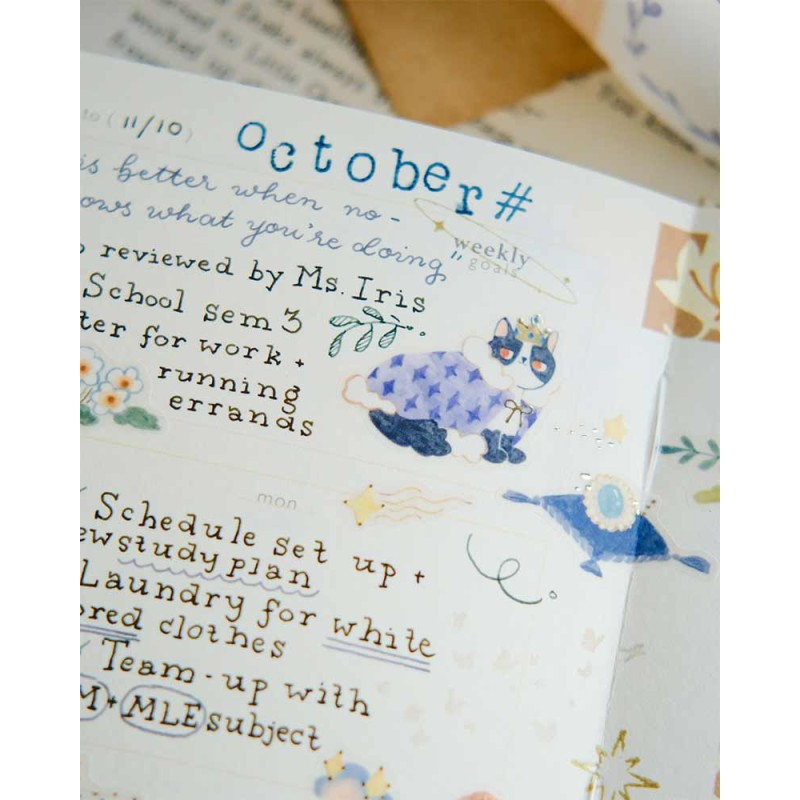 to (11/10)
October #
is better when no-
ows what you're doing"
weekly
goals
reviewed by Ms. Iris
School sem 3
ter for work +
running
errands
mon
Schedule set up +
ew study plan
Laundry for white
ored clothes
Team-up with
M + MLE subject